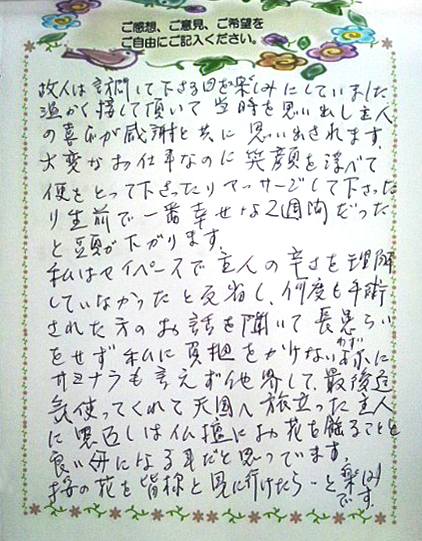 ご感想、ご意見、ご希望を
ご自由にご記入ください。
故人は訪問して下さる日を楽しみにしていました
温かく接して頂いて当時を思い出し主人
の喜びが感謝と共に思い出されます。
大変なお仕事なのに笑顔を浮べて
便をとって下さったりマッサージして下さった
り生前で一番幸せな2週間だった
と頭が下がります。
私はマイペースで主人の辛さを理解
していなかったと反省し、何度も手術
された方のお話を聞いて長患らい
をせず私に負担をかけない
サヨナラも言えず他界して、最後迄
気使ってくれて天国へ旅立った主人
に恩返しは仏壇にお花を飾ること
良い母になる事だと思っています。
の花を皆様と見に行けたら…と楽しみ
です。